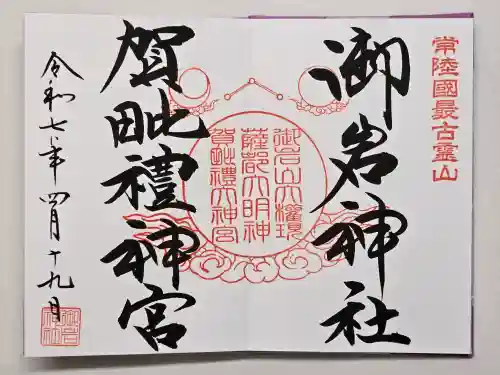 常陸國最古霊山
御岩神社
御岩山大權現
薩都大明神
賀毗禮大神宮
賀毗禮神宮
令和七年四月十九日